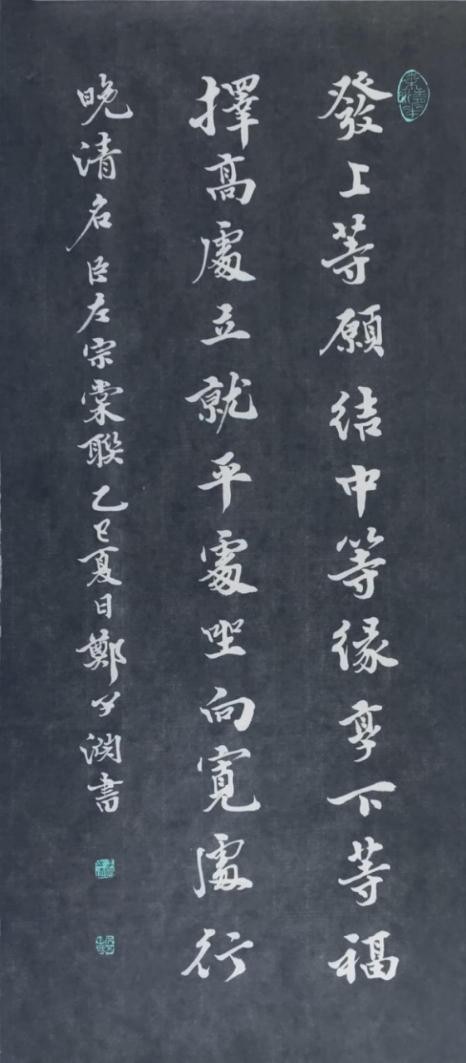 發上等願結中等緣享下等福
擇高處立就平處坐向寬處行
晚清名臣左宗棠聯乙巳夏日鄭公渊書